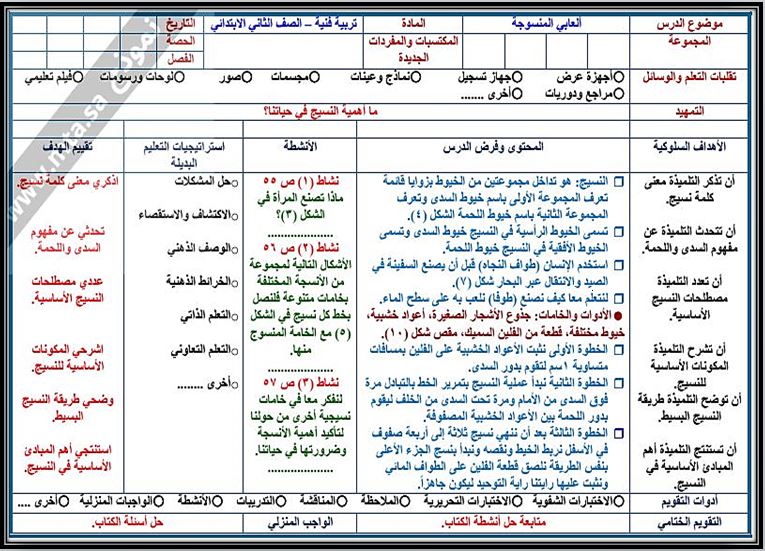 موضوع الدرس
ألعابي المنسوجة
المادة
تربية فنية – الصف الثاني الابتدائي
التاريخ
المجموعة
المكتسبات والمفردات الجديدة
الحصة
الفصل
تقنيات التعلم والوسائل
أجهزة عرض
جهاز تسجيل
نماذج وعينات
مجسمات
صور
لوحات ورسومات
فيلم تعليمي
مراجع ودوريات
أخرى .......
التمهيد
ما أهمية النسيج في حياتنا؟
الأهداف السلوكية
المحتوى وفرض الدرس
الأنشطة
استراتيجيات التعليم
البديلة
تقييم الهدف
أن تذكر التلميذة معنى
كلمة نسيج.
أن تتحدث التلميذة عن
مفهوم السدى واللحمة.
أن تعدد التلميذة
مصطلحات النسيج
الأساسية.
أن تشرح التلميذة
المكونات الأساسية
للنسيج.
أن توضح التلميذة طريقة
النسيج البسيط.
أن تستنتج التلميذة أهم
المبادئ الأساسية في
النسيج.
النسيج: هو تداخل مجموعتين من الخيوط بزوايا قائمة
تعرف المجموعة الأولى باسم خيوط السدى وتعرف
المجموعة الثانية باسم خيوط اللحمة الشكل (٤).
تسمى الخيوط الرأسية في النسيج خيوط السدى وتسمى
الخيوط الأفقية في النسيج خيوط اللحمة.
استخدم الإنسان (طواف النجاه) قبل أن يصنع السفينة في
الصيد والانتقال عبر البحار شكل (٧).
لنتعلم معا كيف نصنع (طوفا) نلعب به على سطح الماء.
الأدوات والخامات: جذوع الأشجار الصغيرة، أعواد خشبية،
خيوط مختلفة، قطعة من الفلين السميك، مقص شكل (١٠).
الخطوة الأولى نثبت الأعواد الخشبية على الفلين بمسافات
متساوية ١سم لتقوم بدور السدى.
الخطوة الثانية نبدأ عملية النسيج بتمرير الخط بالتبادل مرة
فوق السدى من الأمام ومرة تحت السدى من الخلف ليقوم
بدور اللحمة بين الأعواد الخشبية المصفوفة.
الخطوة الثالثة بعد أن ننهي نسيج ثلاثة إلى أربعة صفوف
في الأسفل نربط الخيط ونقصه ونبدأ بنسج الجزء الأعلى
بنفس الطريقة نلصق قطعة الفلين على الطواف المائي
ونثبت عليها رايتنا راية التوحيد ليكون جاهزاً.
نشاط (١) ص ٥٥
ماذا تصنع المرأة في
الشكل (٣)؟
....................
نشاط (٢) ص ٥٦
الأشكال التالية لمجموعة
من الأنسجة المختلفة
بخامات متنوعة فلنصل
بخط كل نسيج في الشكل
(٥) مع الخامة المنسوج
منها.
....................
نشاط (٣) ص ٥٧
لنفكر معا في خامات
نسيجية أخرى من حولنا
لتأكيد أهمية الأنسجة
وضرورتها في حياتنا.
....................
حل المشكلات
الاكتشاف والاستقصاء
الوصف الذهني
الخرائط الذهنية
التعلم الذاتي
التعلم التعاوني
أخرى ........
اذكري معنى كلمة نسيج.
تحدثي عن مفهوم
السدى واللحمة.
عددي مصطلحات
النسيج الأساسية.
اشرحي المكونات
الأساسية للنسيج.
وضحي طريقة النسيج
البسيط.
استنتجي أهم المبادئ
الأساسية في النسيج.
أدوات التقويم
الاختبارات الشفوية
الاختبارات التحريرية
الملاحظة
المناقشة
التدريبات
الأنشطة
الواجبات المنزلية
أخرى ....
التقويم الختامي
متابعة حل أنشطة الكتاب.
الواجب المنزلي
حل أسئلة الكتاب.
نموذج